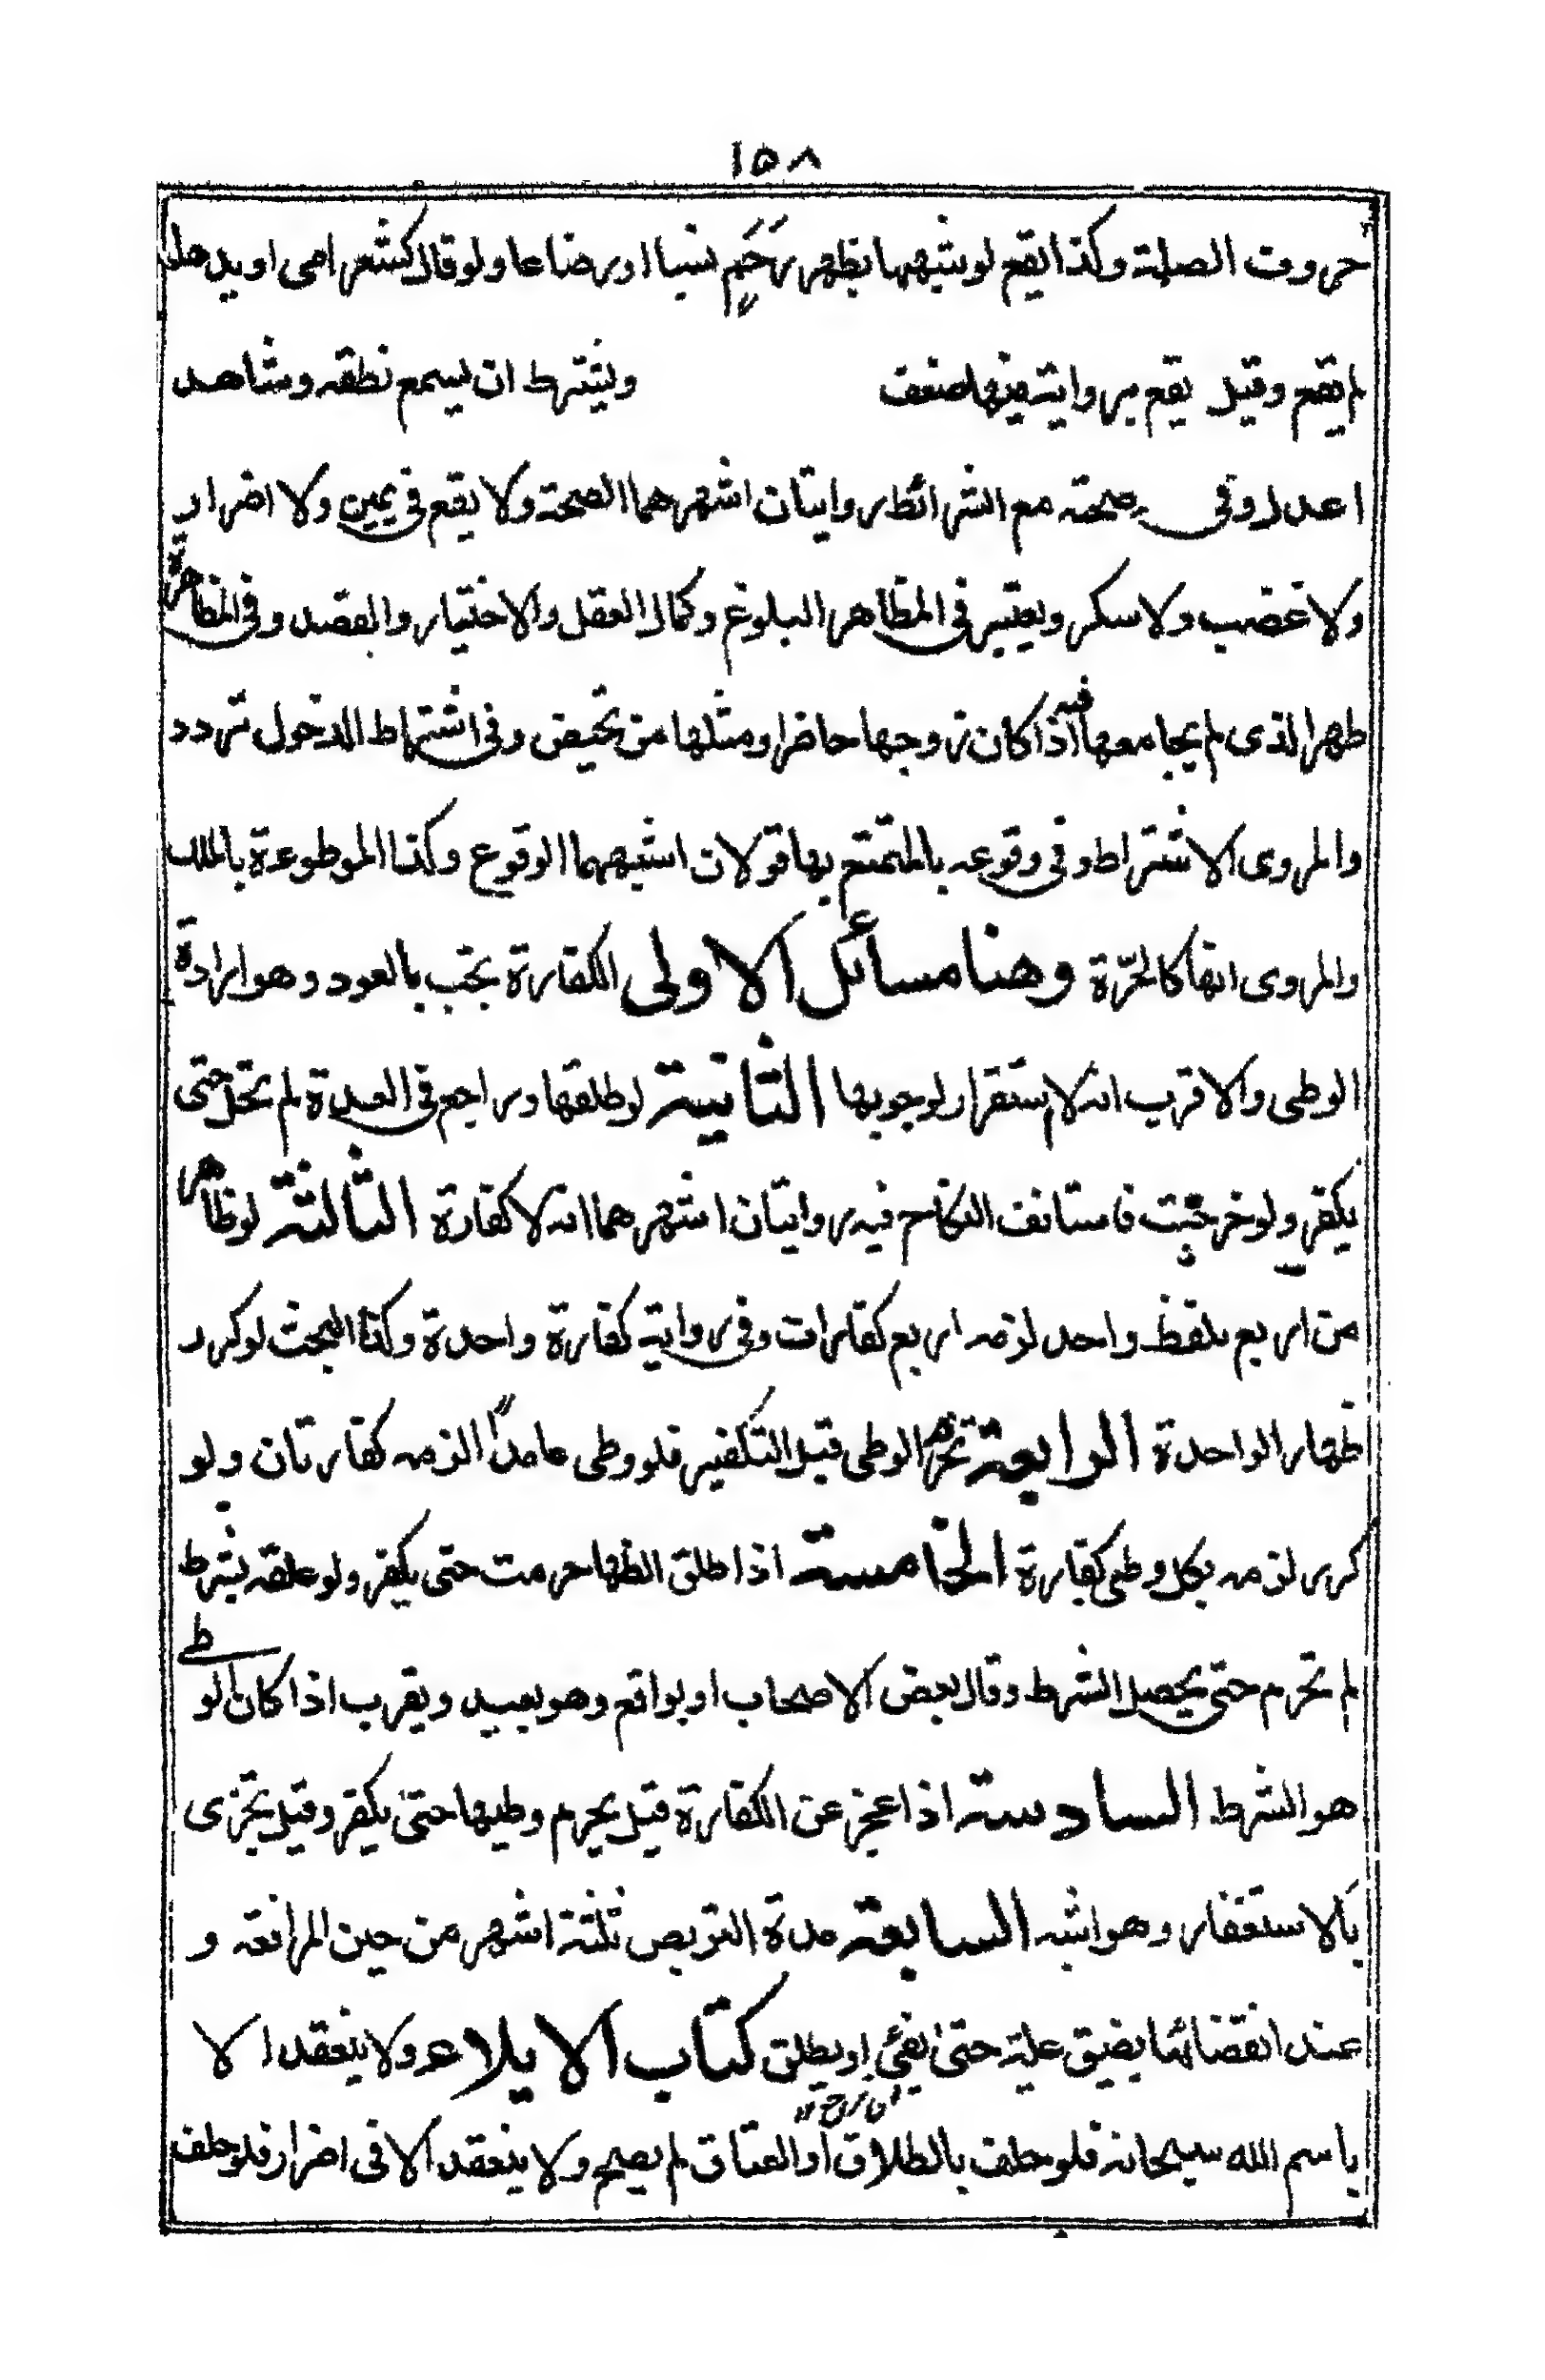 ١٥٨
حروف الصلة وكذا يقع لو شبهها بظهر رحم نسبا او رضاعا ولو قال كشعر امى او يدها
لم يقع وقيل يقع بروايته فيها ضعف ويشترط ان يسمع نطقه وشاهد
اعدل وفى صحته مع الشرائط روايتان اشهرهما الصحة ولا يقع فى يمين ولا اضرار
ولا غضب ولا سكر ويعتبر فى المظاهر البلوغ وكمال العقل والاختيار والقصد وفى المظاهرة
طهر الذى لم يجامعها فيه اذا كان زوجها حاضرا ومثلها من تحيض وفى اشتراط الدخول تردد
والمروى الاشتراط وفى وقوعه بالمتمتع بها قولان اشبههما الوقوع وكذا الموطوءة بالملك
والمروى انها كالحرّة وهنا مسائل الاولى الكفارة تجب بالعود وهو ارادة
الوطى والاقرب انه لا يستقرار لوجوبها الثانية لو طلقها وراجع فى العدة لم تحل حتى
يكفر ولو خرجت فاستانف النكاح فيه روايتان اشهرهما انه لا كفارة الثالثة لو ظاهر
من اربع بلفظ واحد لزمه اربع كفارات وفى رواية كفارة واحدة وكذا البحث لو كرر
ظهار الواحدة الرابعة تحرم الوطى قبل التكفير فلو وطى عامداً الزمه كفارتان ولو
كرر لزمه بكل وطى كفارة الخامسة اذا طلق الظهار حرمت حتى يكفر ولو علقه بشرط
لم تحرم حتى يحصل الشرط وقال بعض الاصحاب او يواقع وهو بعيد ويقرب اذا كان الوطى
هو الشرط السادسة اذا عجز عن الكفارة قيل يحرم وطيها حتى يكفر وقيل يجزى
بالاستغفار وهو اشبه السابعة مدة التربص ثلثة اشهر من حين المرافعة و
عند انقضائها يضيق عليه حتى يفئ او يطلق كتاب الايلاء ولا ينعقد الا
باسم الله سبحانه فلو حلف بالطلاق او العتاق لم يصح ولا ينعقد الا فى اضرار فلو حلف